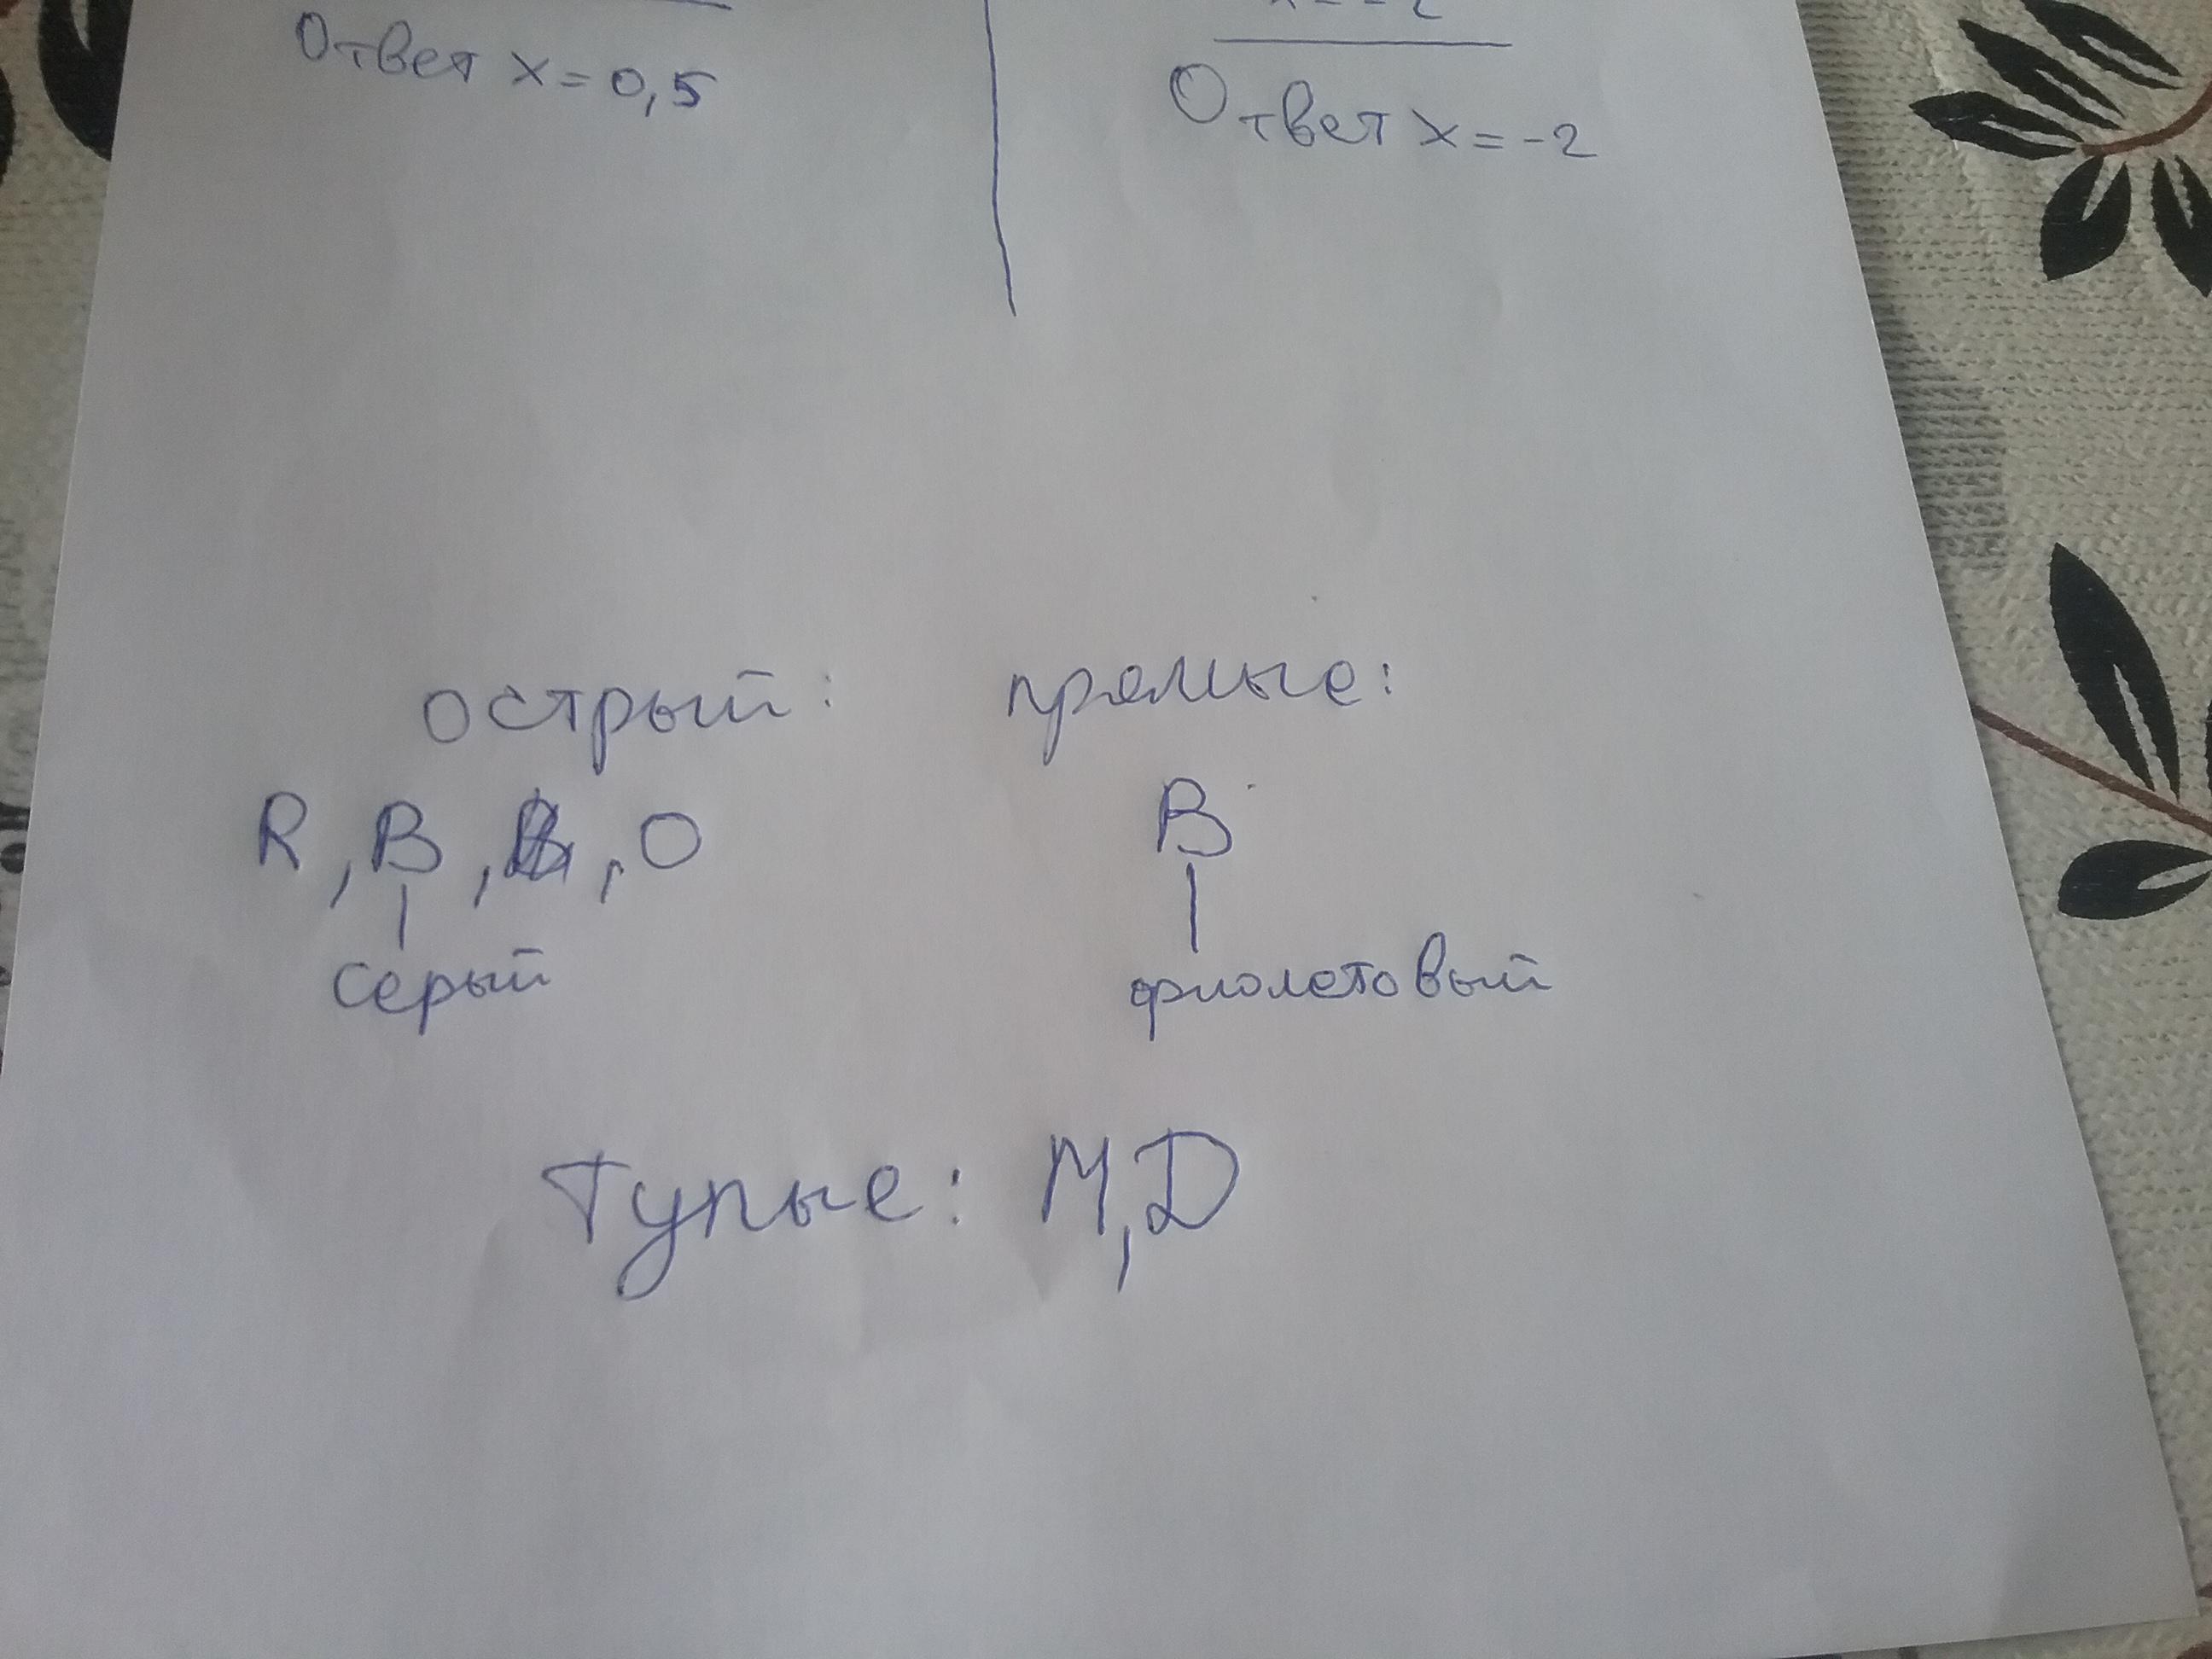 x = -2
Ответ x = 0,5
Ответ x = -2
острый: прямые:
R, B, , O B
серый фиолетовый
Тупые: M, D